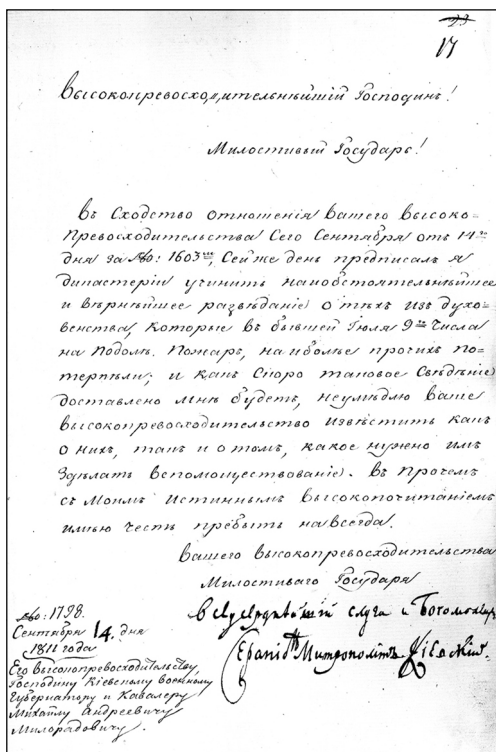 23
17
Высокопревосходительнѣйшій Господинъ!
Милостивый Государь!
Въ Сходство отношенія Вашего Высоко=
Превосходительства Сего Сентября отъ 14го
дня за №: 1603мъ, Сей же день предписалъ я
дикастеріи учинить наиобстоятельнѣйшее
и вѣрнѣйшее развѣданіе о тѣхъ изъ духо=
венства, которые въ бывшей Іюля 9го числа
на Подолѣ Пожаръ, наиболѣе прочихъ по=
терпѣли; и какъ Скоро таковое Свѣдѣніе
доставлено мнѣ будетъ, неумѣдлю Ваше
Высокопревосходительство извѣстить какъ
о нихъ, такъ и о томъ, какое нужно имъ
Здѣлать вспомоществованіе. Въ Прочемъ
съ Моимъ Истиннымъ Высокопочитаніемъ
имѣю честь пребыть на всегда.
Вашего Высокопревосходительства
Милостиваго Государя
слуга и Богомолецъ
Митрополитъ Кіевскій
№: 1798.
Сентября 14. дня
1811 года
Его Высокопревосходительству
Господину Кіевскому военному
Губернатору и Кавалеру
Михайлу Андреевичу
Милорадовичу.